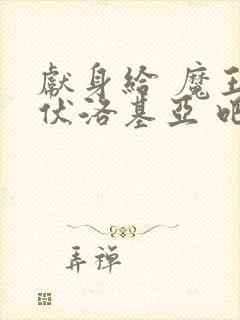 獻身給 魔王
伏洛基亞 吧
弄禪